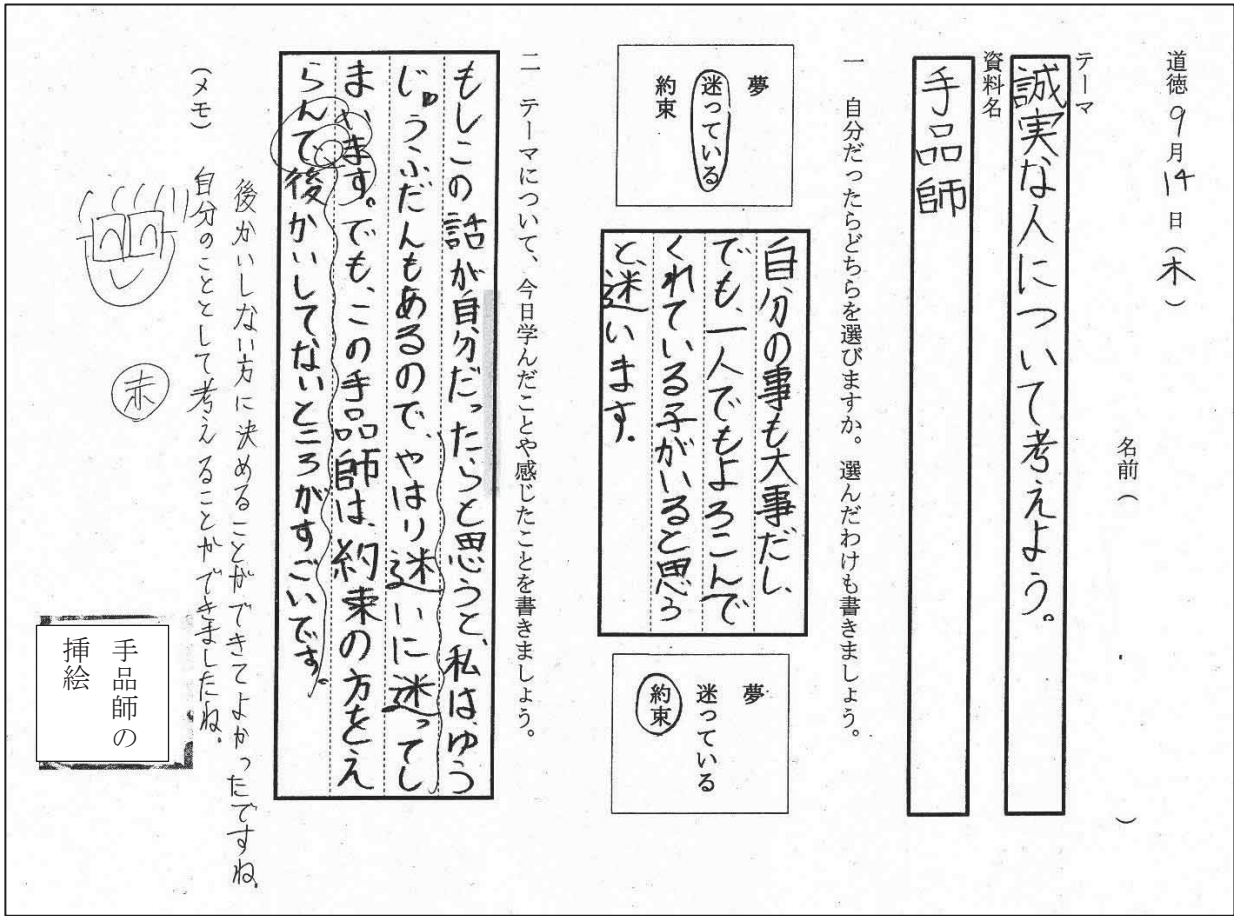 道徳 9月14日(木)
名前( )
テーマ
誠実な人について考えよう。
資料名
手品師
一 自分だったらどちらを選びますか。選んだわけも書きましょう。
夢
迷っている
約束
自分の事も大事だし、
でも、一人でもよろこんで
くれている子がいると思う
と、迷います。
夢
迷っている
約束
二 テーマについて、今日学んだことや感じたことを書きましょう。
もしこの話が自分だったらと思うと、私は、ゆう
じゅうふだんもあるので、やはり迷いに迷ってし
まいます。でも、この手品師は、約束の方をえ
らんで、後かいしてないところがすごいです。
(メモ)
後かいしない方に決めることができてよかったですね。
自分のこととして考えることができましたね。
手品師の
挿絵